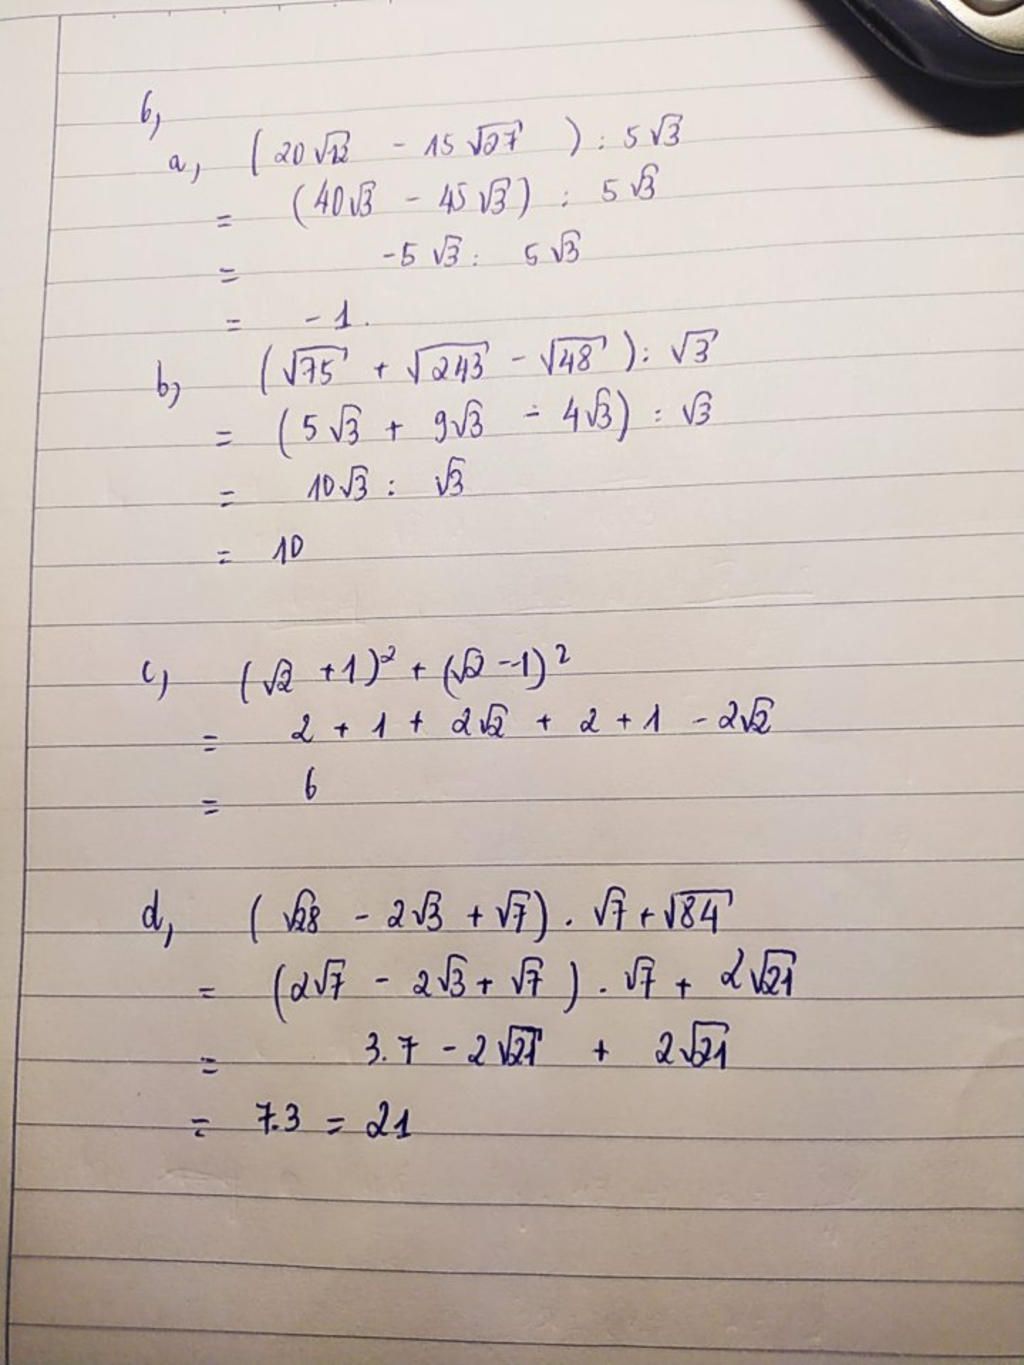 6,
a, (20√12 - 15√27) : 5√3
= (40√3 - 45√3) : 5√3
= -5√3 : 5√3
= -1.
b, (√75 + √243 - √48) : √3
= (5√3 + 9√3 - 4√3) : √3
= 10√3 : √3
= 10
c, (√2 + 1)² + (√2 - 1)²
= 2 + 1 + 2√2 + 2 + 1 - 2√2
= 6
d, (√28 - 2√3 + √7) . √7 + √84
= (2√7 - 2√3 + √7) . √7 + 2√21
= 3.7 - 2√21 + 2√21
= 7.3 = 21